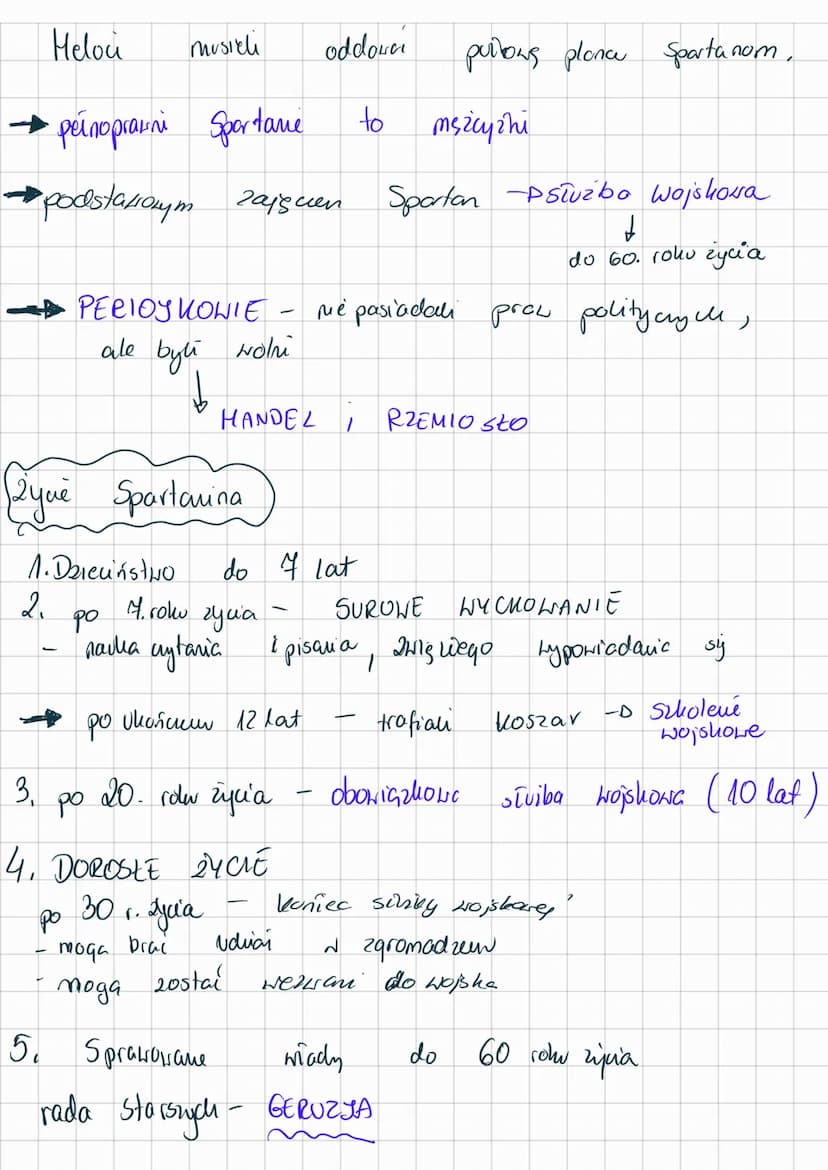 Heloci musieli oddawać połowę plonu Spartanom.
→ pełnoprawni Spartanie to mężczyźni
→ podstawowym zajęciem Spartan → służba wojskowa
↓
do 60. roku życia
→ PERIOJKOWIE - nie posiadali praw politycznych,
ale byli wolni
↓
HANDEL i RZEMIOSŁO
Życie Spartanina
1. Dzieciństwo do 7 lat
2. po 7. roku życia - SUROWE WYCHOWANIE
- nauka czytania i pisania, zwięzłego wypowiadania się
→ po ukończeniu 12 lat - trafiali koszar → szkolenie
wojskowe
3. po 20. roku życia - obowiązkowa służba wojskowa (10 lat)
4. DOROSŁE ŻYCIE
po 30 r. życia - koniec służby wojskowej
- mogą brać udział w zgromadzeniu
- mogą zostać wezwani do wojska
5. Sprawowanie władzy do 60 roku życia
rada starszych - GERUZJA